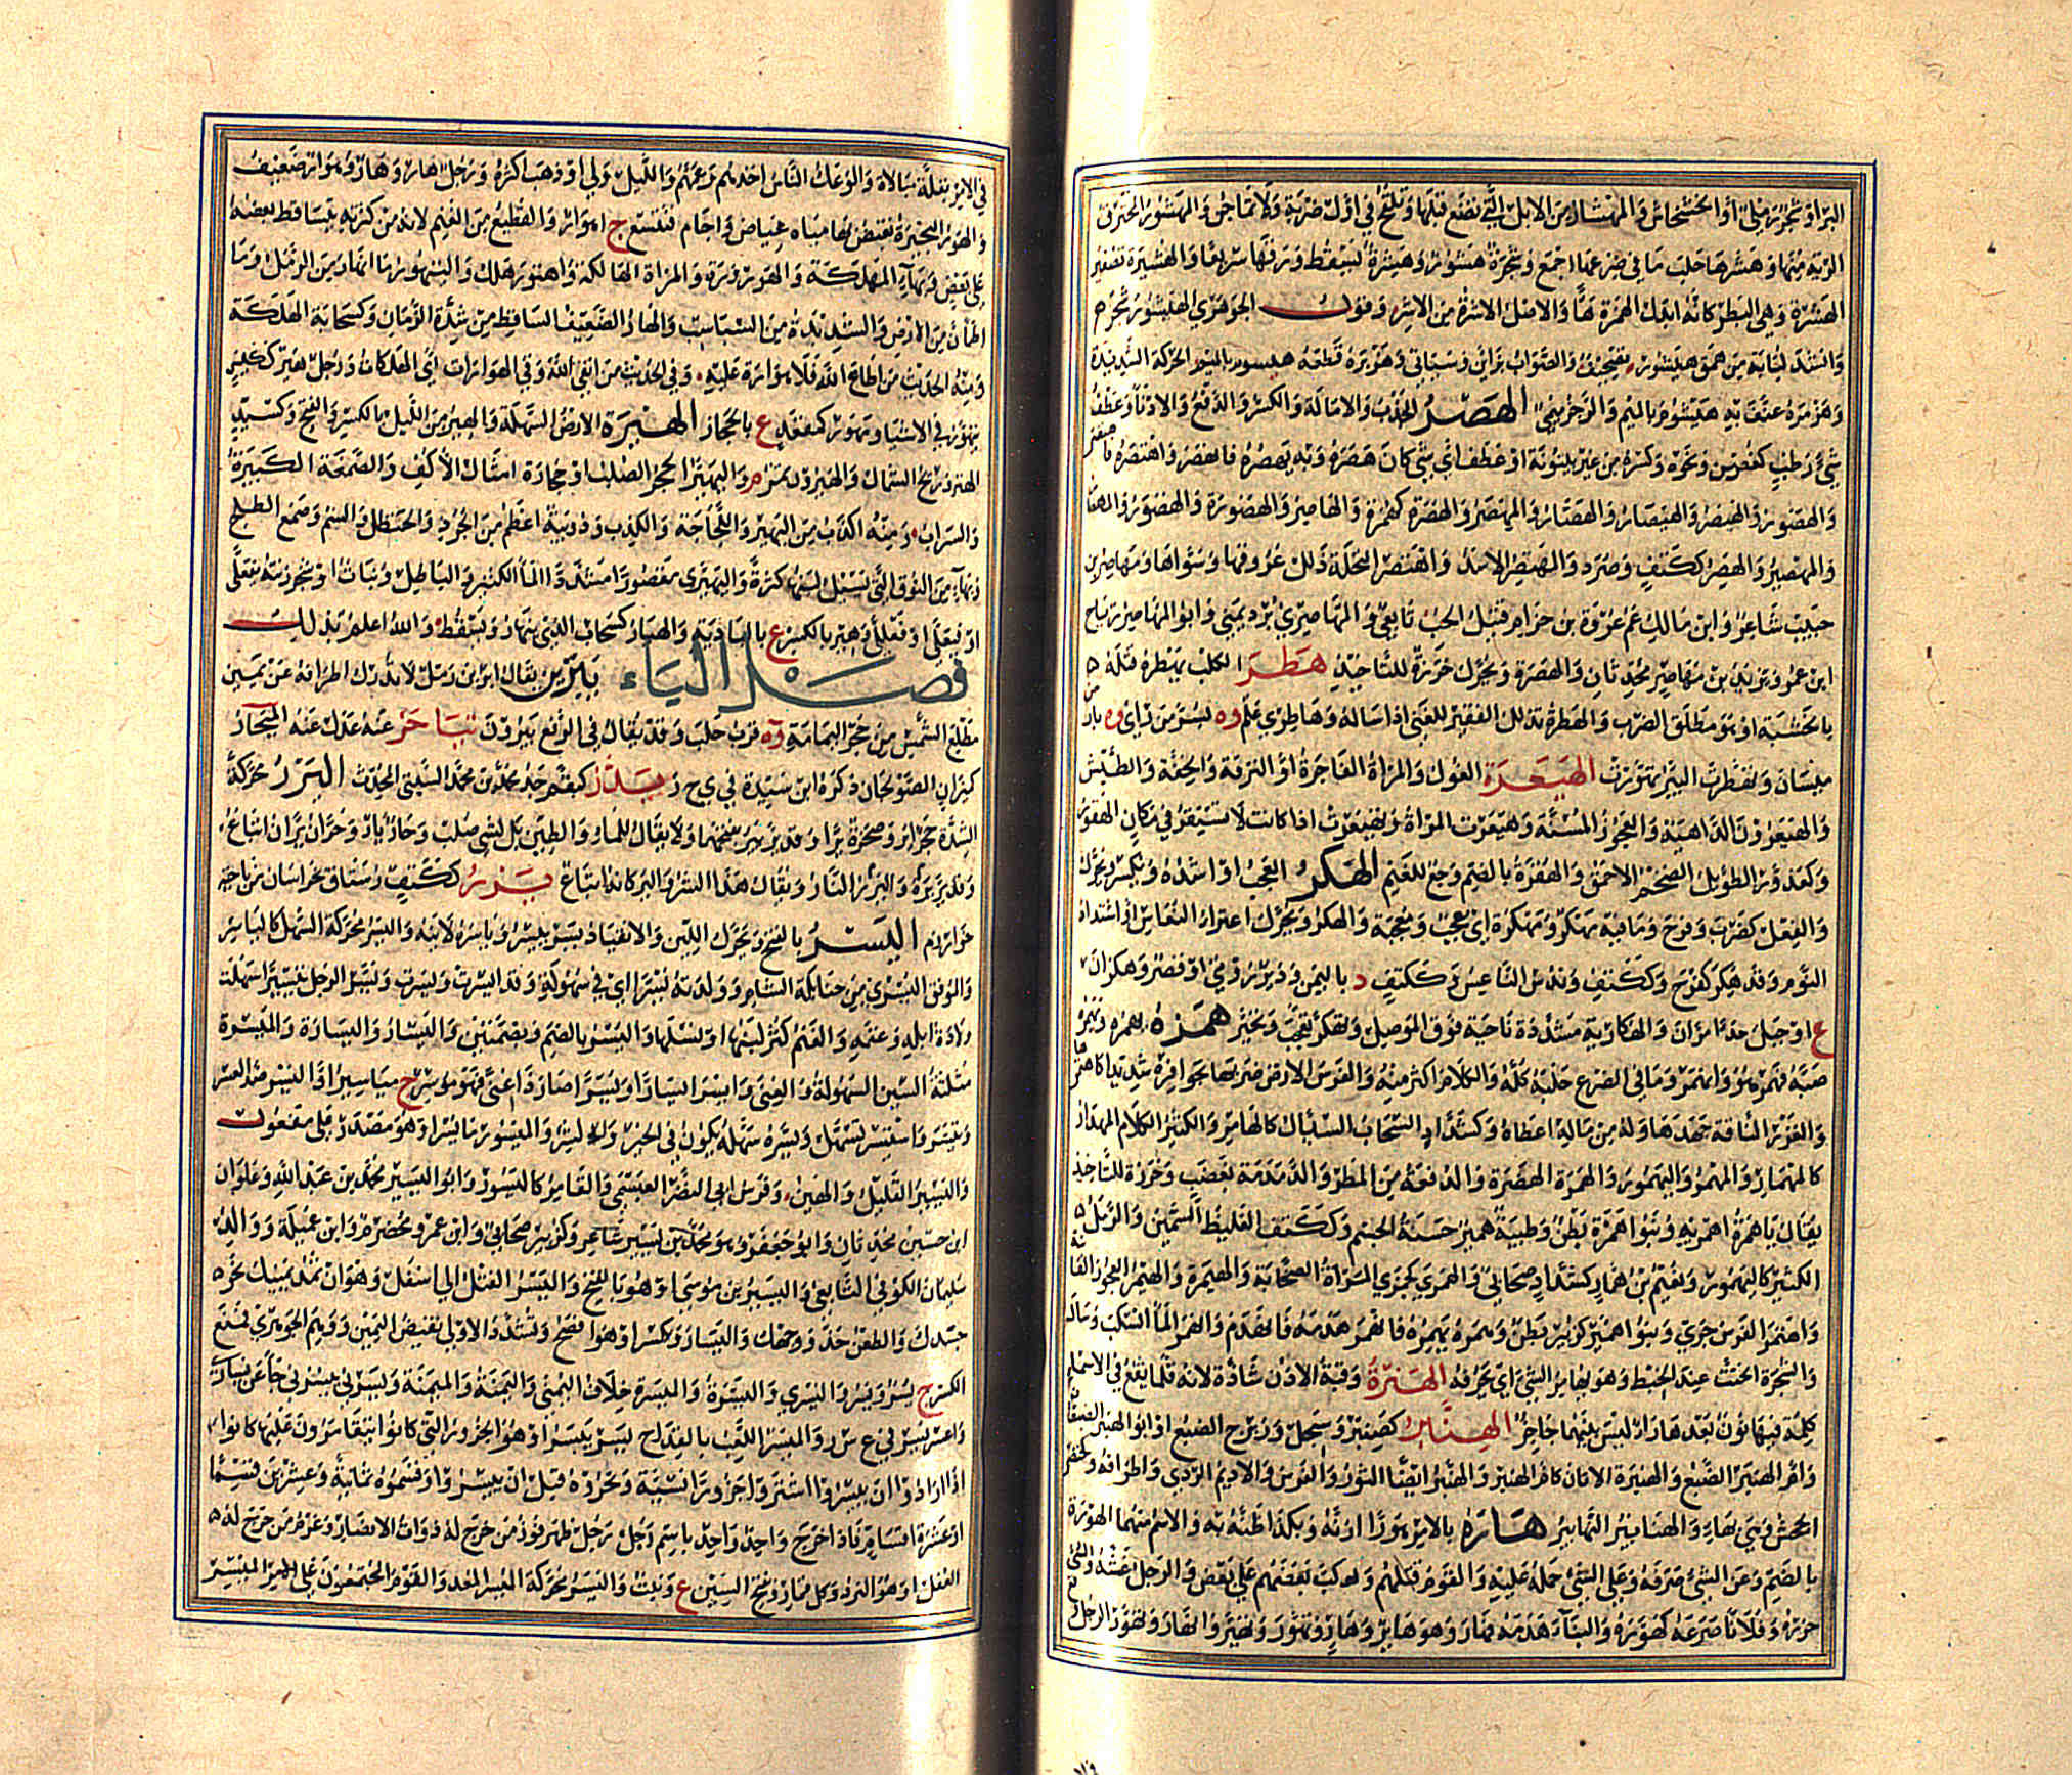 البر او شجر رملي او الخشخاش والمهشار من الابل التي تضع قبلها وتلقح في اول ضربة ولا تماجن والمهشور المحترق
الرية منها وهشرها حلب ما في ضرعها اجمع وشجرة هشور وهشرة تسقط ورقها سريعا والهشيرة تصغير
الهشرة وهي البطر كانه ابدل الهمزة هاء والاصل الاشرة من الاشر وقول الجوهري الهيشور شجر
وانشد لباية من همق هيشور تصحيف والصواب
وهزمره عنف به هيشوم بالميم والرجز ميمي الهصر الجذب والامالة والكسر والدفع والادناء وعطف
شيء رطب كغصن ونحوه وكسره من غير بينونة او عطف اي شيء كان هصره وبه يهصره فانهصر واهتصره
والهصور والهيصر والهيصار والهصار والمهتصر والهصرة كهمزة والهاصر والهصورة والهصور
والمهصير والهصر ككتف وصرد والمهتصر الاسد واهتصر النخلة ذلل عذوقها وسواها ومهاصر بن
حبيب شاعر وابن مالك عم عروة بن حزام قتيل الحب تابعي والمهاصري برد يمني وابو المهاصر رياح
ابن عمرو ويزيد بن مهاصر محدثان والهصرة ويحرك خرزة للتاخيذ هطر الكلب يهطره قتله
بالخشبة او هو مطلق الضرب والهطرة تذلل الفقير للغني اذا ساله وهاطرى علم وه بسر من راى وه بار
ميسان وتهطرت البئر تهورت الهيعرة الغول والمراة الفاجرة او النزقة والخفة والطيش
والهيعرون الداهية والعجوز المسنة وهيعرت المراة وتهيعرت اذا كانت لا تستقر في مكان الهقور
كعذور الطويل الضخم الاحمق والهقرة بالضم وجع للغنم الهكر العجب او اشده ويكسر ويحرك
والفعل كضرب وفرح وما فيه مهكر ومهكرة اي معجب ومعجبة والهكر ويحرك اعتراء النعاس او اشتداد
النوم وقد هكر كفرح وككتف وندس الناعس وككتف د باليمن ودير رومي او قصر وهكران
ع او جبل حذاء مران والهكارية مشددة ناحية فوق الموصل وتهكر تعجب وتحير همره يهمره ويهمره
صبه فهمر هو وانهمر وما في الضرع حلبه كله والكلام اكثر منه والفرس الارض ضربها بحوافره شديدا كاهتمر
والغزر الناقة جهدها وله من ماله اعطاه وكشداد السحاب السيال كالهامر والكثير الكلام المهذار
كالمهمار والمهمر واليهمور والهمرة الهصرة والدفعة من المطر والدمدمة بغضب وخرزة للتاخيذ
يقال يا همرة اهمريه وبنو همرة بطن وظبية همير حسنة الجسم وككتف الغليظ السمين والرمل
الكثير كاليهمور ونعيم بن همار كشداد صحابي والهمرى كجمزى المراة الصخابة والهيمرة والهيمر العجوز الفا
واهتمر الفرس جرى وبنو اهمير كزبير بطن وهمره يهمره فانهمر هدمه فانهدم وانهمر الماء انسكب وسال
والشجرة انحتت عند الخبط وهو يهامر الشيء اي يجرفه الهنرة وقبة الاذن شاذة لانه قلما يقع في الاسماء
كلمة فيها نون بعدها راء ليس بينهما حاجز الهنابر كصنبر وسبحل وزبرج الضبع او ابو الهنبر الضبعان
وام الهنبر الضبع والهنبرة الاتان كام الهنبر والهنبر ايضا الثور والفرس والاديم الردي واطرافه
الجحش وهي بهاء والهنابير النهابير هاره بالامر هورا ازنه وبكذا ظنه به والاسم منهما الهورة
بالضم وعن الشيء صرفه وعلى الشيء حمله عليه والقوم قتلهم وكب بعضهم على بعض والرجل غشه والشيء
حزره وفلانا صرعه كهوره والبناء هدمه فهار وهو هائر وهار وتهور وتهير وانهار وتهور الرجل
في الامر بقلة مبالاة والوعك الناس اخذهم وعمهم والليل ولى او ذهب اكثره ورجل هار وهار وهوار ضعيف
والهور البحيرة تغيض بها مياه غياض واجام فتتسع ج اهوار والقطيع من الغنم لانه من كثرته يتساقط بعضه
على بعض وبهاء المهلكة والهورورة والمراة الهالكة واهتور هلك والتيهور ما انهار من الرمل وما
اطمان من الارض والشديدة من السباسب والهار الضعيف الساقط من شدة الزمان وكسحابة الهلكة
ومنه الحديث من اطاع الله فلا هوارة عليه وفي الحديث من اتقى الله وقي الهوارات اي الهلكات ورجل هير ككيس
يتهور في الاشياء ومهور كمقعد ع بالحجاز الهيرة الارض السهلة والهير من الليل بالكسر والفتح وكسيد
الهتر وريح الشمال والهيرون تمر م واليهير الحجر الصلب او حجارة امثال الاكف والصمغة الكبيرة
والسراب ومنه اكذب من اليهير واللجاجة والكذب ودويبة اعظم من الجرذ والحنظل والسم وصمغ الطلح
وبهاء من النوق التي تسيل لبنها كثرة واليهيرى مقصورا مشددا الماء الكثير والباطل ونبات او شجر زنته يفعلى
او فيعلى او فعللى وهير بالكسر ع بالبادية والهيار كسحاب الذي ينهار ويسقط والله اعلم بذلك
فصل الياء يبرين يقال ابرين رمل لا تدرك اطرافه عن يمين
مطلع الشمس من حجر اليمامة وه قرب حلب وقد يقال في الرفع يبرون تياحر عنه عدل عنه اليحار
كيران الصولجان ذكره ابن سيدة في ي ح ر يدر كبقم جد محمد بن محمد السلفي المحدث اليرر محركة
الشدة حجر اير وصخرة يراء وقد ير يير بفتحهما ولا يقال للماء والطين بل لشيء صلب وحار يار وحران يران اتباع
وقد ير يررا واليرة النار ويقال هذا الشر واليركانه اتباع يزر ككتف رستاق بخراسان من ناحية
خوارزم اليسر بالفتح ويحرك اللين والانقياد يسر ييسر وياسره لاينه واليسر محركة السهل كالياسر
والموفق اليسري من حنابلة الشام وولدته يسرا اي في سهولة وقد ايسرت ويسرت ويسر الرجل تيسيرا سهلت
ولادة ابله وغنمه والغنم كثر لبنها او نسلها واليسر بالضم وبضمتين واليسار واليسارة والميسرة
مثلثة السين السهولة والغنى وايسر ايسارا ويسرا صار ذا غنى فهو موسر ج مياسير واليسر ضد العسر
وتيسر واستيسر تسهل ويسره سهله يكون في الخير والشر والميسور ما يسر او هو مصدر على مفعول
واليسير القليل والهين وفرس ابي النضر العبسي والقامر كاليسور وابو اليسير محمد بن عبد الله وعلوان
ابن حسين محدثان وابو جعفر وهو محمد بن يسير شاعر وكزبير صحابي وابن عمرو مخضرم وابن عميلة ووالد
سليمان الكوفي التابعي واليسير بن موسى او هو بالفتح واليسر الفتل الى اسفل وهو ان تمد يمينك نحو
جسدك والطعن حذو وجهك واليسار ويكسر او هو افصح وتشدد الاولى نقيض اليمين ووهم الجوهري فمنع
الكسر ج يسر ويسر واليسرى واليسرة والميسرة خلاف اليمنى واليمنة والميمنة ويسرني ييسرني جاء عن يساري
واعسر يسر في ع س ر والميسر اللعب بالقداح يسر ييسر او هو الجزور التي كانوا يتقامرون عليها كانوا
اذا ارادوا ان ييسروا اشتروا جزورا نسيئة ونحروه قبل ان ييسروا وقسموه ثمانية وعشرين قسما
او عشرة اقسام فاذا خرج واحد واحد باسم رجل رجل ظهر فوز من خرج له ذوات الانصباء وغرم من خرج له
الغفل او هو النرد وكل قمار وفتح السين ع وبيت واليسر محركة الميسر المعد والقوم المجتمعون على الميسر